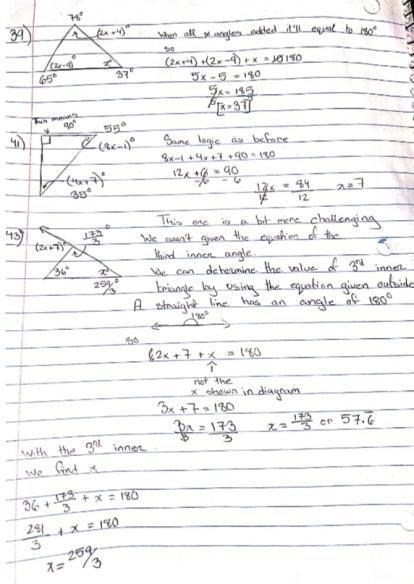 39)
78°
(2x+4)°
(2x-9)°
x
65°
37°
When all x angles added it'll equal to 180°
so
(2x+4)+(2x-9)+x = 180
5x-5 = 180
5x = 185
[x=37]
41)
This means
90°
55°
(8x-1)°
(4x+7)°
35°
Same logic as before
8x-1+4x+7+90=180
12x+6 = 90
-6 -6
12x = 84
12 12
x=7
43)
173°
3
(2x+7)°
x
36°
x°
259°
3
This one is a bit more challenging
We aren't given the equation of the
third inner angle.
We can determine the value of 3rd inner
triangle by using the equation given outside
A straight line has an angle of 180°
180°
so
(2x+7+x = 180
not the
x shown in diagram
3x+7=180
3x = 173
3 3
x = 173/3 or 57.6̅
With the 3rd inner
we find x
36 + 173/3 + x = 180
281/3 + x = 180
x = 259/3